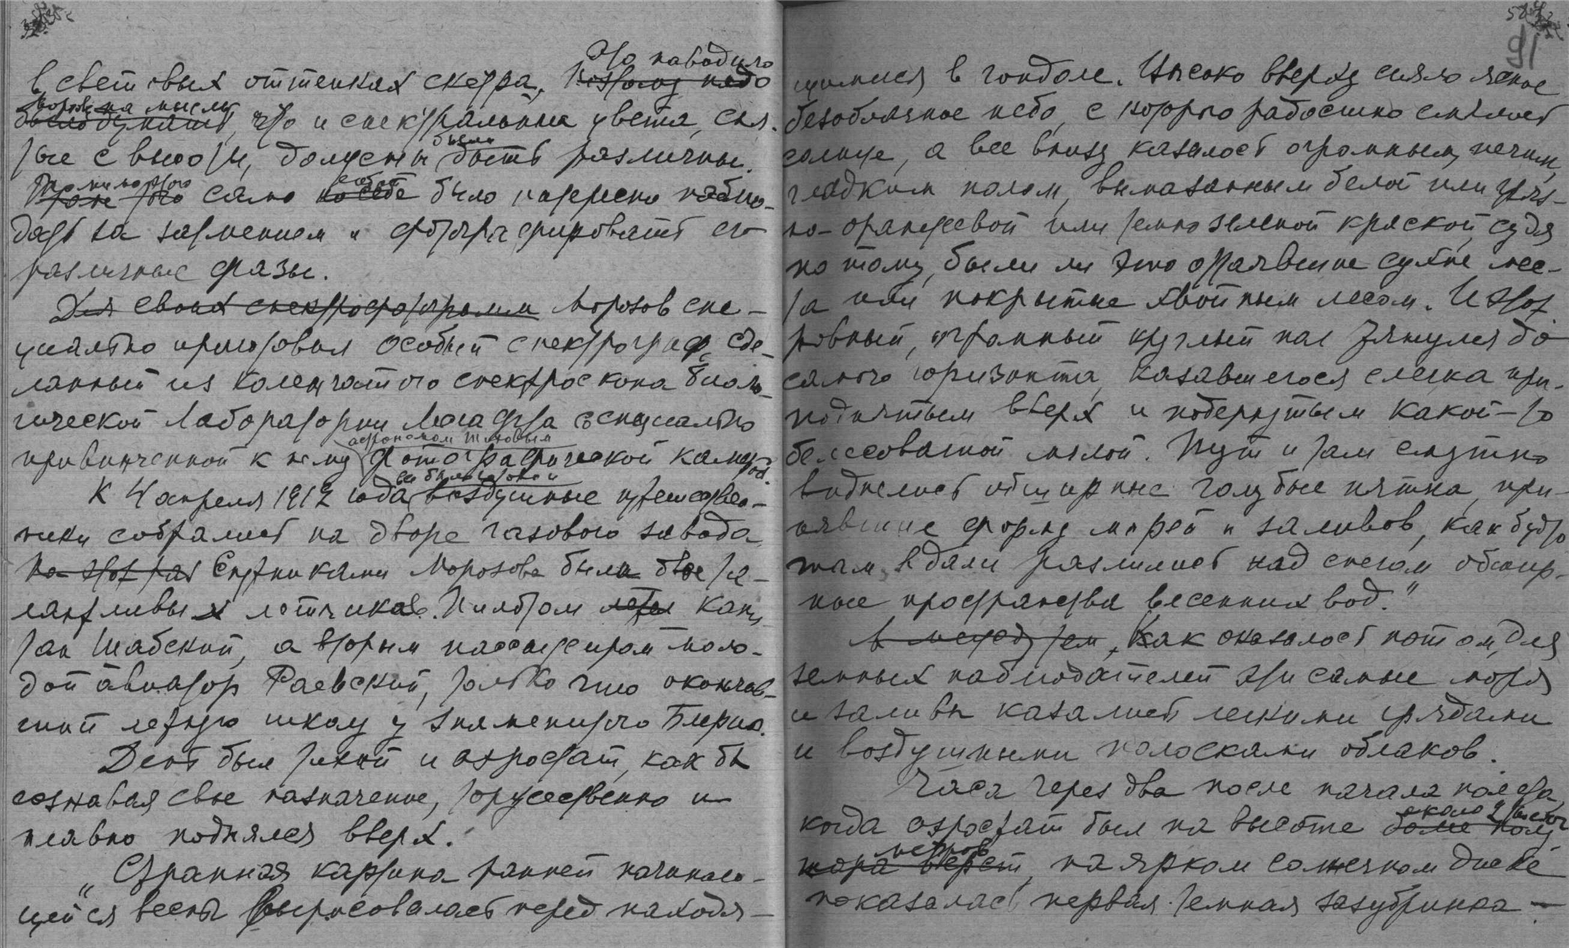 Это наводило
в световых оттенках спектра. Поэтому надо
порой на мысль
было думать, что и спектральные цвета, сня-
были
тые с высоты, должны быть различны.
само по себе было интересно наблю-
дать за затмением и фотографировать его
различные фазы.
Для своих спектрофотограмм Морозов спе-
циально приготовил особый спектрограф, сде-
ланный из коленчатого спектроскопа биоло-
гической лаборатории Лесгафта с специально
астрономом Тиховым
привинченной к нему фотографической камерой.
К 4 апреля 1912 года воздушные путешествен-
ники собрались на дворе газового завода
На этот раз Спутниками Морозова были двое та-
лантливых летчиков. Пилотом летел капи-
тан Шабский, а вторым пассажиром моло-
дой авиатор Раевский, только что окончив-
ший летную школу у знаменитого Блерио.
День был тихий и аэростат, как бы
сознавая свое назначение, торжественно и
плавно поднялся вверх.
„Странная картина ранней начинаю-
щейся весны вырисовалась перед находя-
91
щимися в гондоле. Высоко вверху сияло ясное
безоблачное небо, с которого радостно смеялось
солнце, а все внизу казалось огромным, ничем,
гладким полом, вымазанным белой или гряз-
но-оранжевой или темно зеленой краской, судя
по тому, были ли это оттаявшие сухие мес-
та или покрытые хвойным лесом. И этот
ровный, огромный круглый пол тянулся до
самого горизонта, казавшегося слегка при-
поднятым вверх и подернутым какой-то
белесоватой мглой. Тут и там смутно
виднелись обширные голубые пятна, при-
нявшие форму морей и заливов, как будто
там, вдали разлились над снегом обшир-
ные пространства весенних вод."
А между тем, Как оказалось потом, для
земных наблюдателей эти самые моря
и заливы казались легкими грядами
и воздушными полосками облаков.
Часа через два после начала полета,
около 2 тысяч
когда аэростат был на высоте более полу-
метров
тора верст, на ярком солнечном диске
показалась первая темная зазубринка —